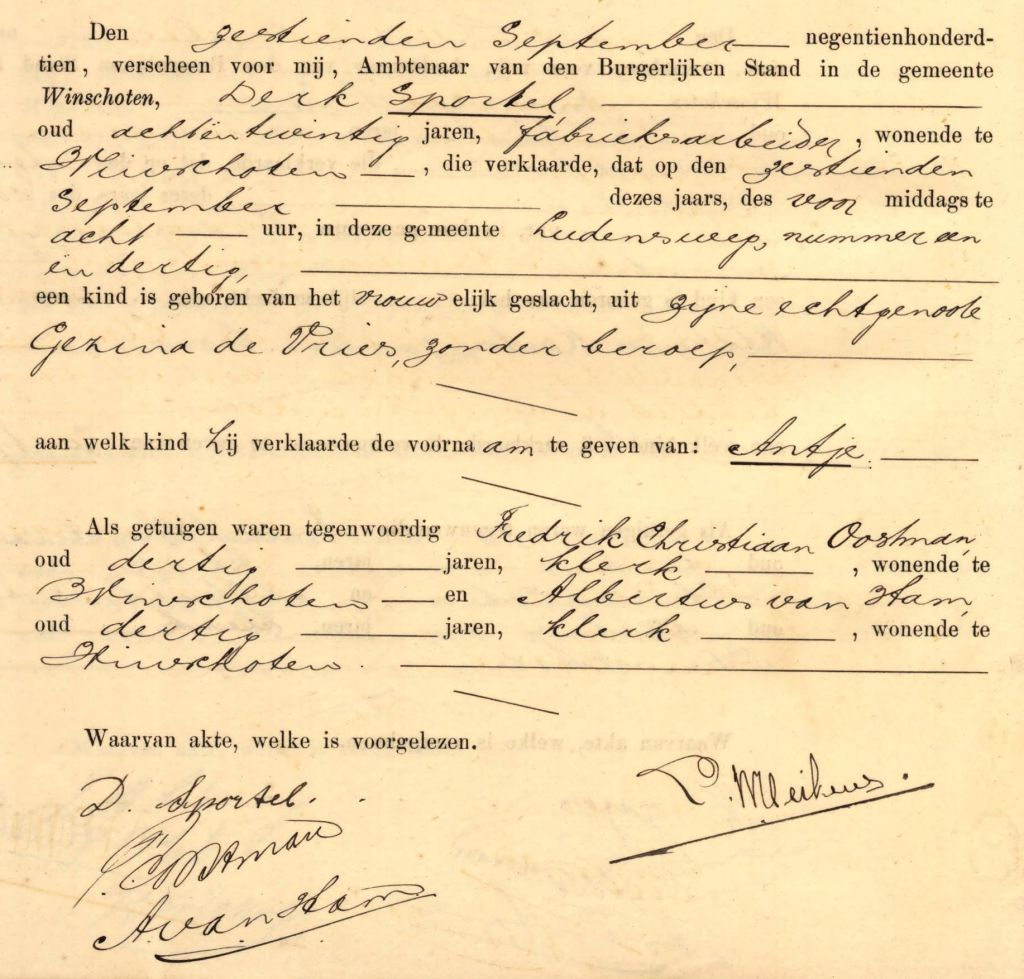 Den zestienden September negentienhonderd-
tien, verscheen voor mij, Ambtenaar van den Burgerlijken Stand in de gemeente
Winschoten, Derk Sportel
oud achtentwintig jaren, fabrieksarbeider, wonende te
Winschoten, die verklaarde, dat op den zestienden
September dezes jaars, des voor middags te
acht uur, in deze gemeente Ludensweg, nummer een
en dertig,
een kind is geboren van het vrouwelijk geslacht, uit zijne echtgenoote
Gezina de Vries, zonder beroep,
aan welk kind hij verklaarde de voornaam te geven van: Antje.
Als getuigen waren tegenwoordig Fredrik Christiaan Oostman,
oud dertig jaren, klerk, wonende te
Winschoten en Albertus van Ham,
oud dertig jaren, klerk, wonende te
Winschoten.
Waarvan akte, welke is voorgelezen.
D. Sportel.
Oostman
A. van Ham